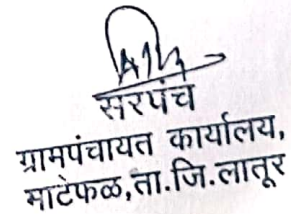 सरपंच
ग्रामपंचायत कार्यालय,
माटेफळ,ता.जि.लातूर